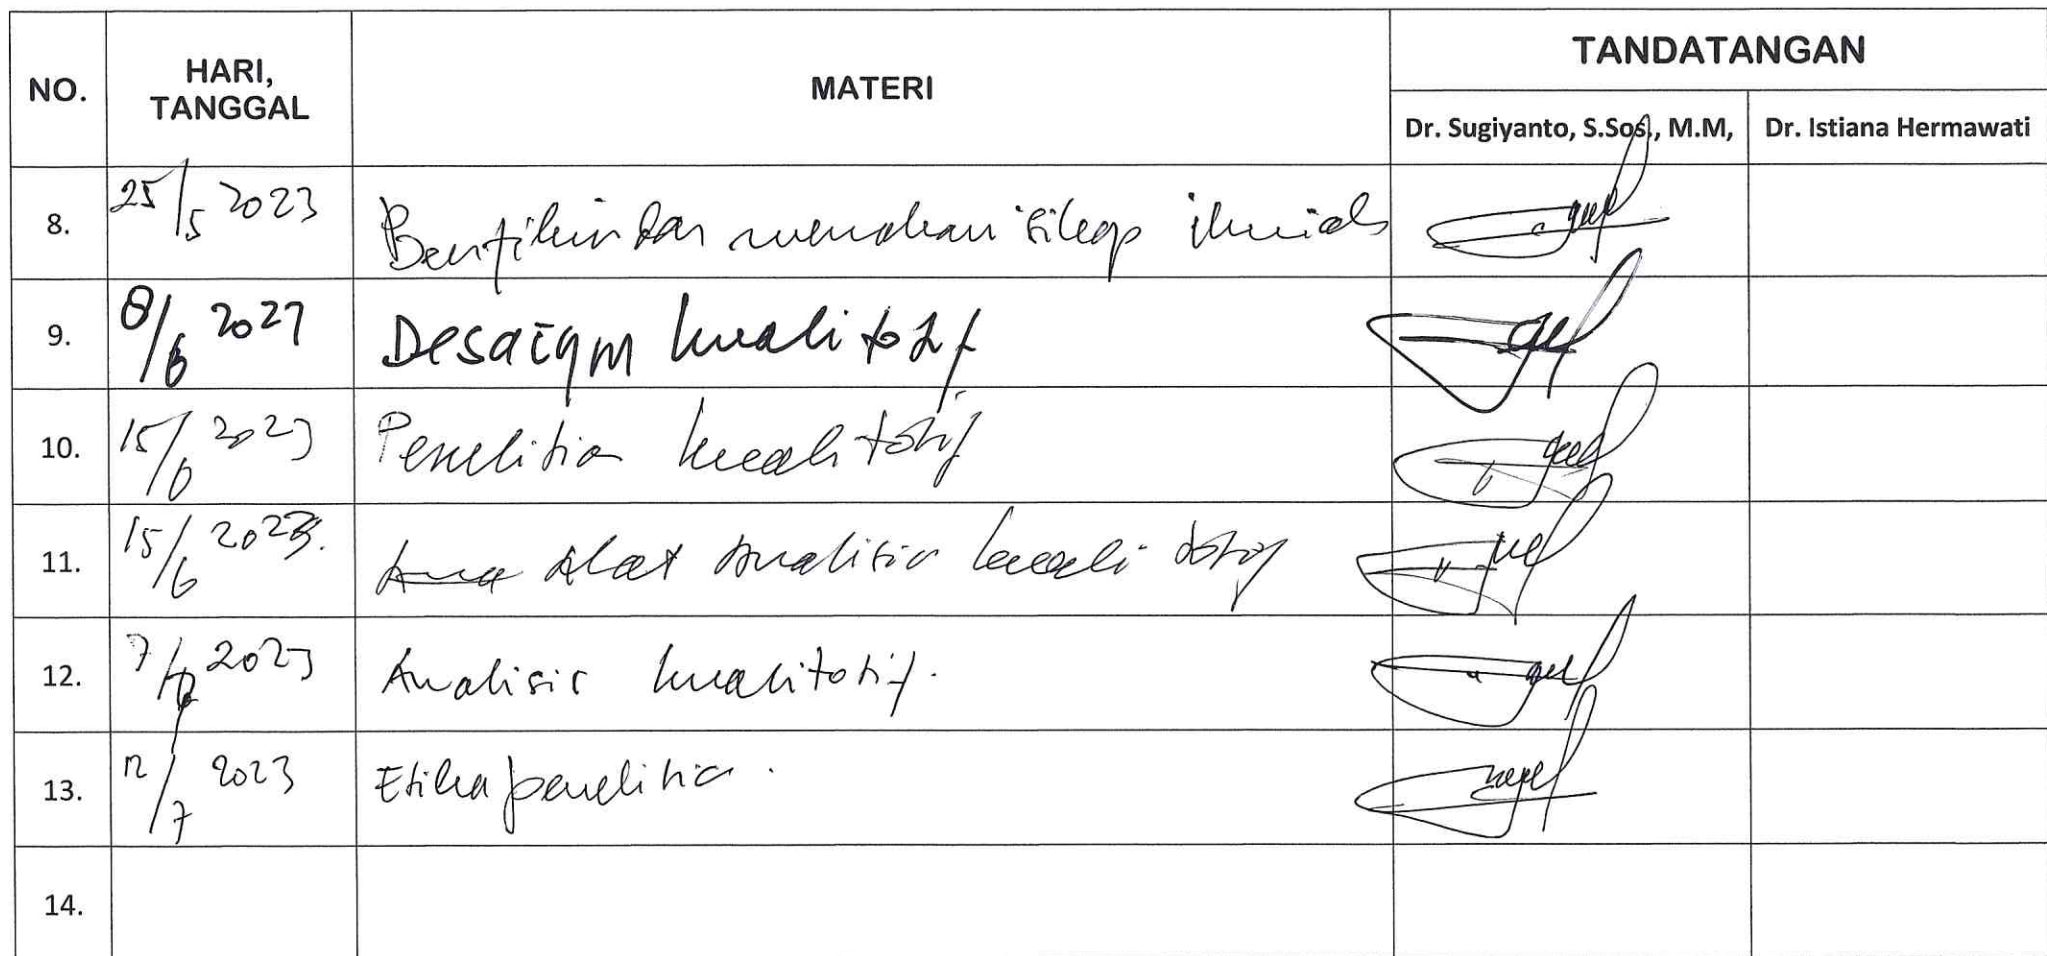 NO. HARI, TANGGAL MATERI TANDATANGAN
Dr. Sugiyanto, S.Sos., M.M, Dr. Istiana Hermawati
8. 25/5 2023 Berfikir dan ilmiah
9. 8/6 2023 kualitatif
10. 15/6 2023 Penelitian kualitatif
11. 15/6 2023. Alat Analisis kualitatif
12. 2023 Analisis kualitatif.
13. 12/7 2023 Etika penelitian.
14.